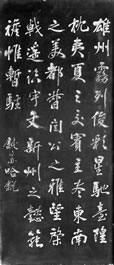 雄州霧列俊彩星馳臺隍
枕夷夏之交賓主盡東南
之美都督閻公之雅望棨
戟遙臨宇文新州之懿範
襜帷暫駐